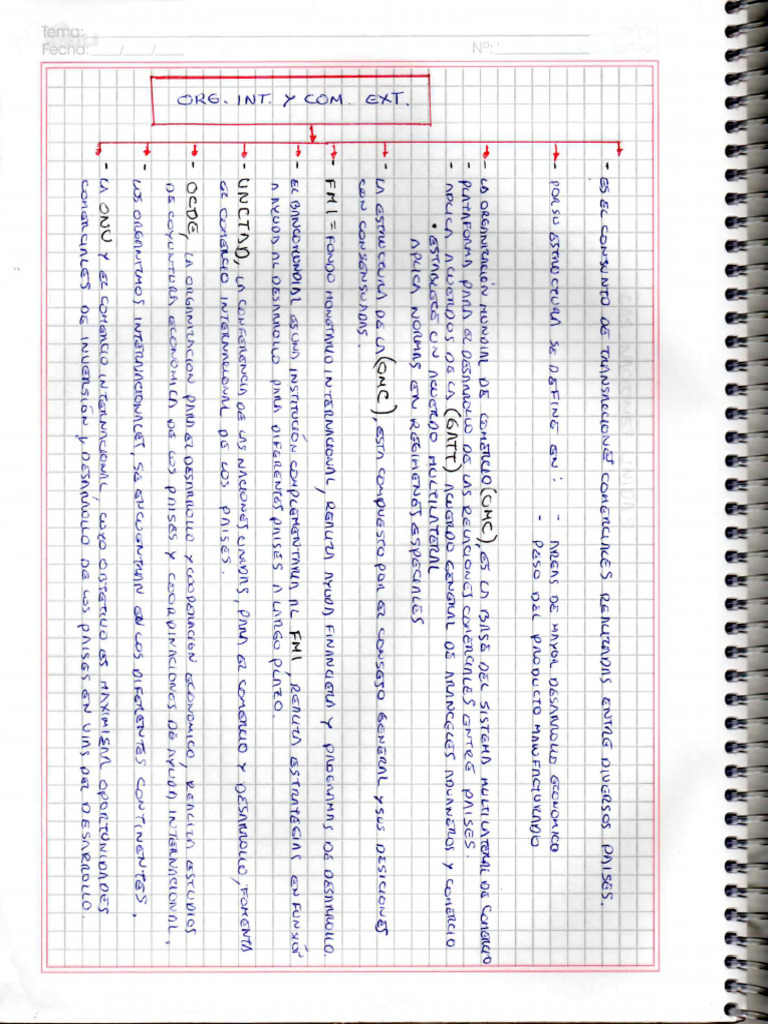 Tema:
Fecha: / /
Nº:
ORG. INT. Y COM. EXT.
- ES EL CONJUNTO DE TRANSACCIONES COMERCIALES REALIZADAS ENTRE DIVERSOS PAISES.
- POR SU ESTRUCTURA SE DEFINE EN: - AREAS DE MAYOR DESARROLLO ECONOMICO
- PESO DEL PRODUCTO MANUFACTURADO
- LA ORGANIZACIÓN MUNDIAL DE COMERCIO (OMC), ES LA BASE DEL SISTEMA MULTILATERAL DE COMERCIO
- PLATAFORMA PARA EL DESARROLLO DE LAS RELACIONES COMERCIALES ENTRE PAISES.
- APLICA ACUERDOS DE LA (GATT) ACUERDO GENERAL DE ARANCELES ADUANEROS Y COMERCIO
• ESTABLECE UN ACUERDO MULTILATERAL
APLICA NORMAS EN REGIMENES ESPECIALES
- LA ESTRUCTURA DE LA (OMC), ESTA COMPUESTO POR EL CONSEJO GENERAL Y SUS DESICIONES
CON CONSENSUADAS.
- FMI = FONDO MONETARIO INTERNACIONAL, REALIZA AYUDA FINANCIERA Y PROGRAMAS DE DESARROLLO.
- EL BANCO MUNDIAL ES UNA INSTITUCIÓN COMPLEMENTARIA AL FMI, REALIZA ESTRATEGIAS EN FUNSIÓ
A AYUDA AL DESARROLLO PARA DIFERENTES PAISES A LARGO PLAZO.
- UNCTAD, LA CONFERENCIA DE LAS NACIONES UNIDAS, PARA EL COMERCIO Y DESARROLLO, FOMENTA
EL COMERCIO INTERNACIONAL DE LOS PAISES.
- OCDE, LA ORGANIZACION PARA EL DESARROLLO Y COOPERACIÓN ECONOMICO, REALIZA ESTUDIOS
DE COYUNTURA ECONOMICA DE LOS PAISES Y COORDINACIONES DE AYUDA INTERNACIONAL,
- LOS ORGANIZMOS INTERNACIONALES, SE ENCUENTRAN EN LOS DIFERENTES CONTINENTES,
- LA ONU Y EL COMERCIO INTERNACIONAL, CUYO OBJETIVO ES MAXIMIZAR OPORTUNIDADES
COMERCIALES DE INVERSIÓN Y DESARROLLO DE LOS PAISES EN VIAS DEL DESARROLLO.